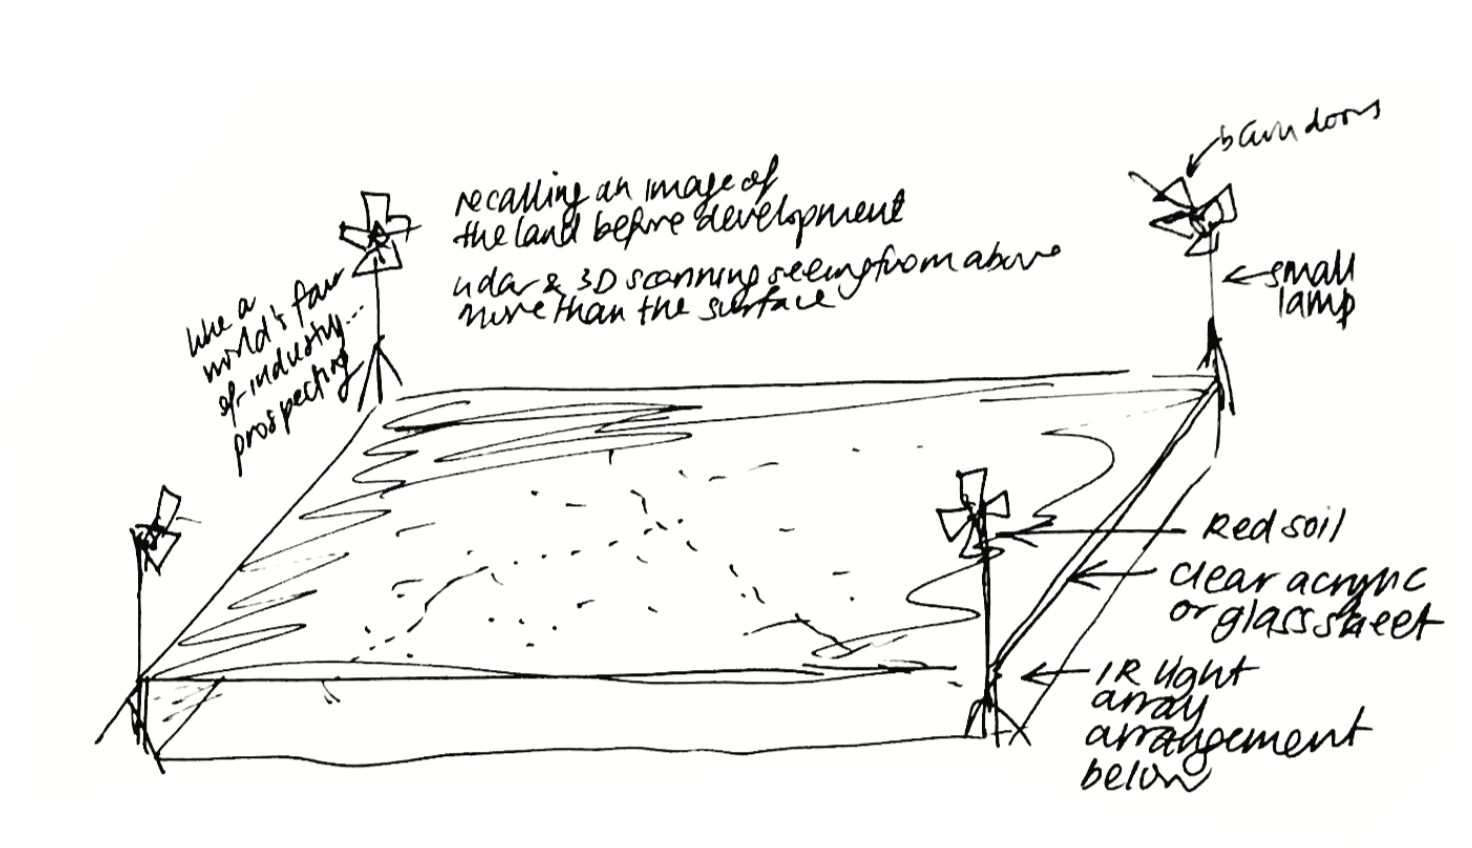 barn doors
recalling an image of
the land before development
lidar & 3D scanning seeing from above
more than the surface
small
lamp
like a
world's fair
of industry...
prospecting
Red soil
clear acrylic
or glass sheet
IR light
array
arrangement
below